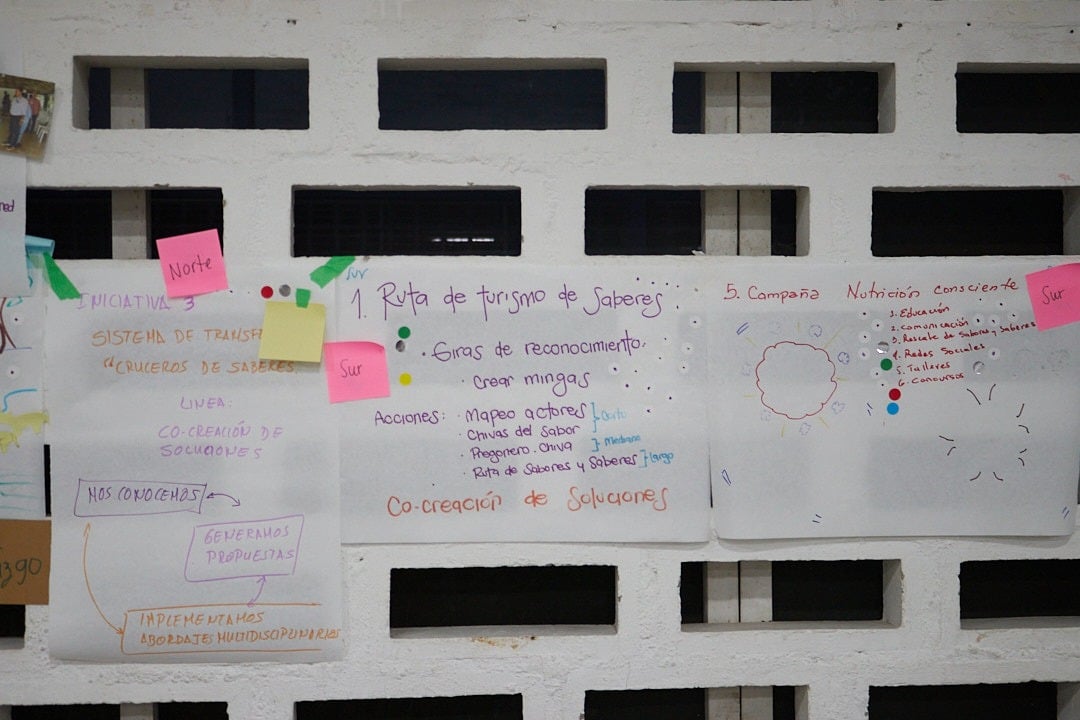 ned
Norte
INICIATIVA 3
SISTEMA DE TRANSF
"CRUCEROS DE SABERES
LINEA:
CO-CREACIÓN DE
SOLUCIONES
NOS CONOCEMOS
GENERAMOS
PROPUESTAS
IMPLEMENTAMOS
ABORDAJES MULTIDISCIPLINARIOS
Sur
1. Ruta de turismo de Saberes
Sur
· Giras de reconocimiento.
· Crear mingas
Acciones: · Mapeo actores } Corto
· Chivas del Sabor
· Pregonero. Chiva } Mediano
· Ruta de Sabores y Saberes } Largo
Co-creación de Soluciones
5. Campaña Nutrición consciente
Sur
1. Educación
2. Comunicación
3. Rescate de Sabores y Saberes
4. Redes Sociales
5. Talleres
6. Concursos